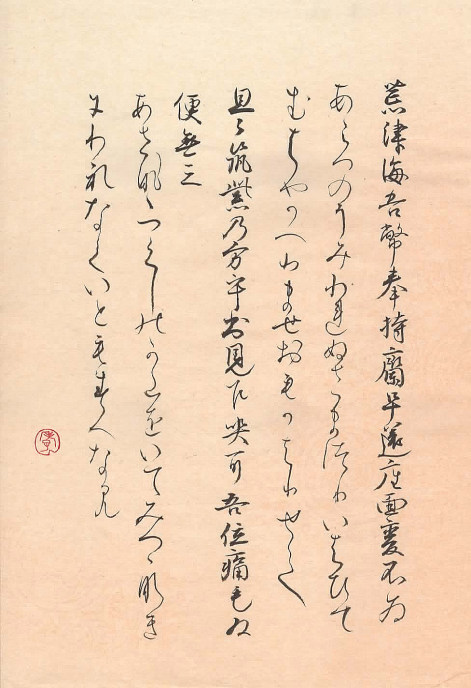 荒津海吾幣奉将齋早還座面變不為
あらつのうみわれぬさまつりいはひて
むはやかへりませおもかはりせ
旦々筑紫乃方乎出見乍哭耳吾泣痛毛為
便無三
あさな〱つくしのかたをいてみつゝなき
にわれなくいともすへなみ